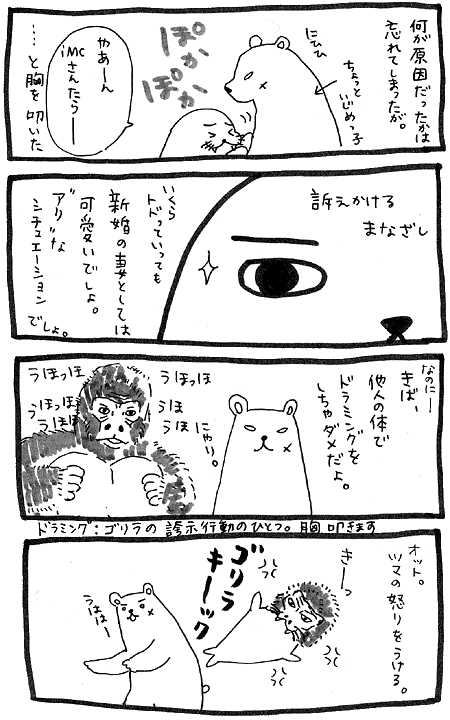 何が原因だったかは
忘れてしまったが。
にひひ
ちょっと
いじめっ子
ぽか
ぽか
やあーん
iMC
さんたらー
…… と胸を叩いた
訴えかける
まなざし
いくら
トドっていっても
新婚の妻としては
可愛いでしょ。
アリな
シチュエーション
でしょ。
なのにー
きばー
他人の体で
ドラミングを
しちゃダメだよ。
にやり。
うほっほ
うほ
うほ
うほっほ
うほっほ
うほほ
ドラミング:ゴリラの誇示行動のひとつ。胸叩きます
オット。
ツマの怒りをうける。
きーっ
ゴリラ
キーック
うほほー